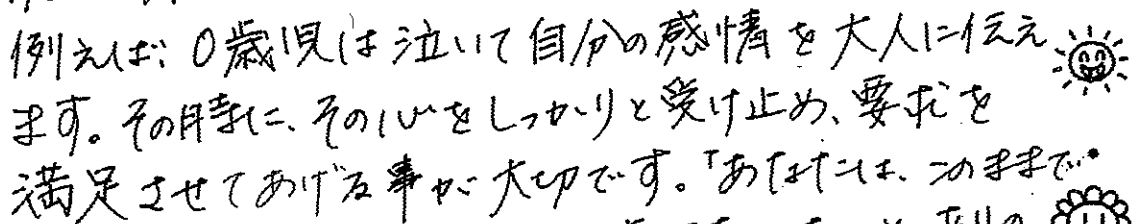 例えば、0歳児は泣いて自分の感情を大人に伝え
ます。その時に、その心をしっかりと受け止め、要求を
満足させてあげる事が大切です。「あなたは、このままで